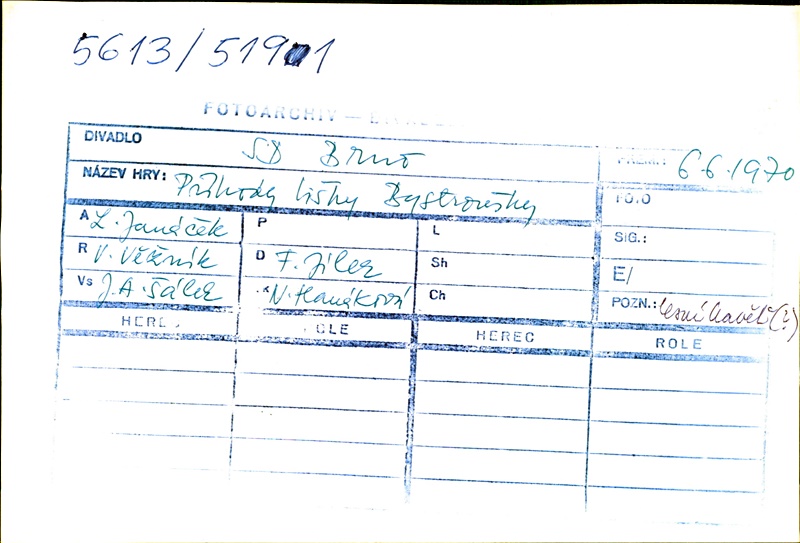 5613/51901
FOTOARCHIV —
DIVADLO SD Brno
PREM.: 6.6.1970
NÁZEV HRY: Příhody lišky Bystroušky
FOTO
A L. Janáček P L
SIG.:
R V. Věžník D F. Jílek Sh
E/
Vs J.A. Šálek K N. Hanáková Ch
POZN.: (?)
HEREC ROLE HEREC ROLE